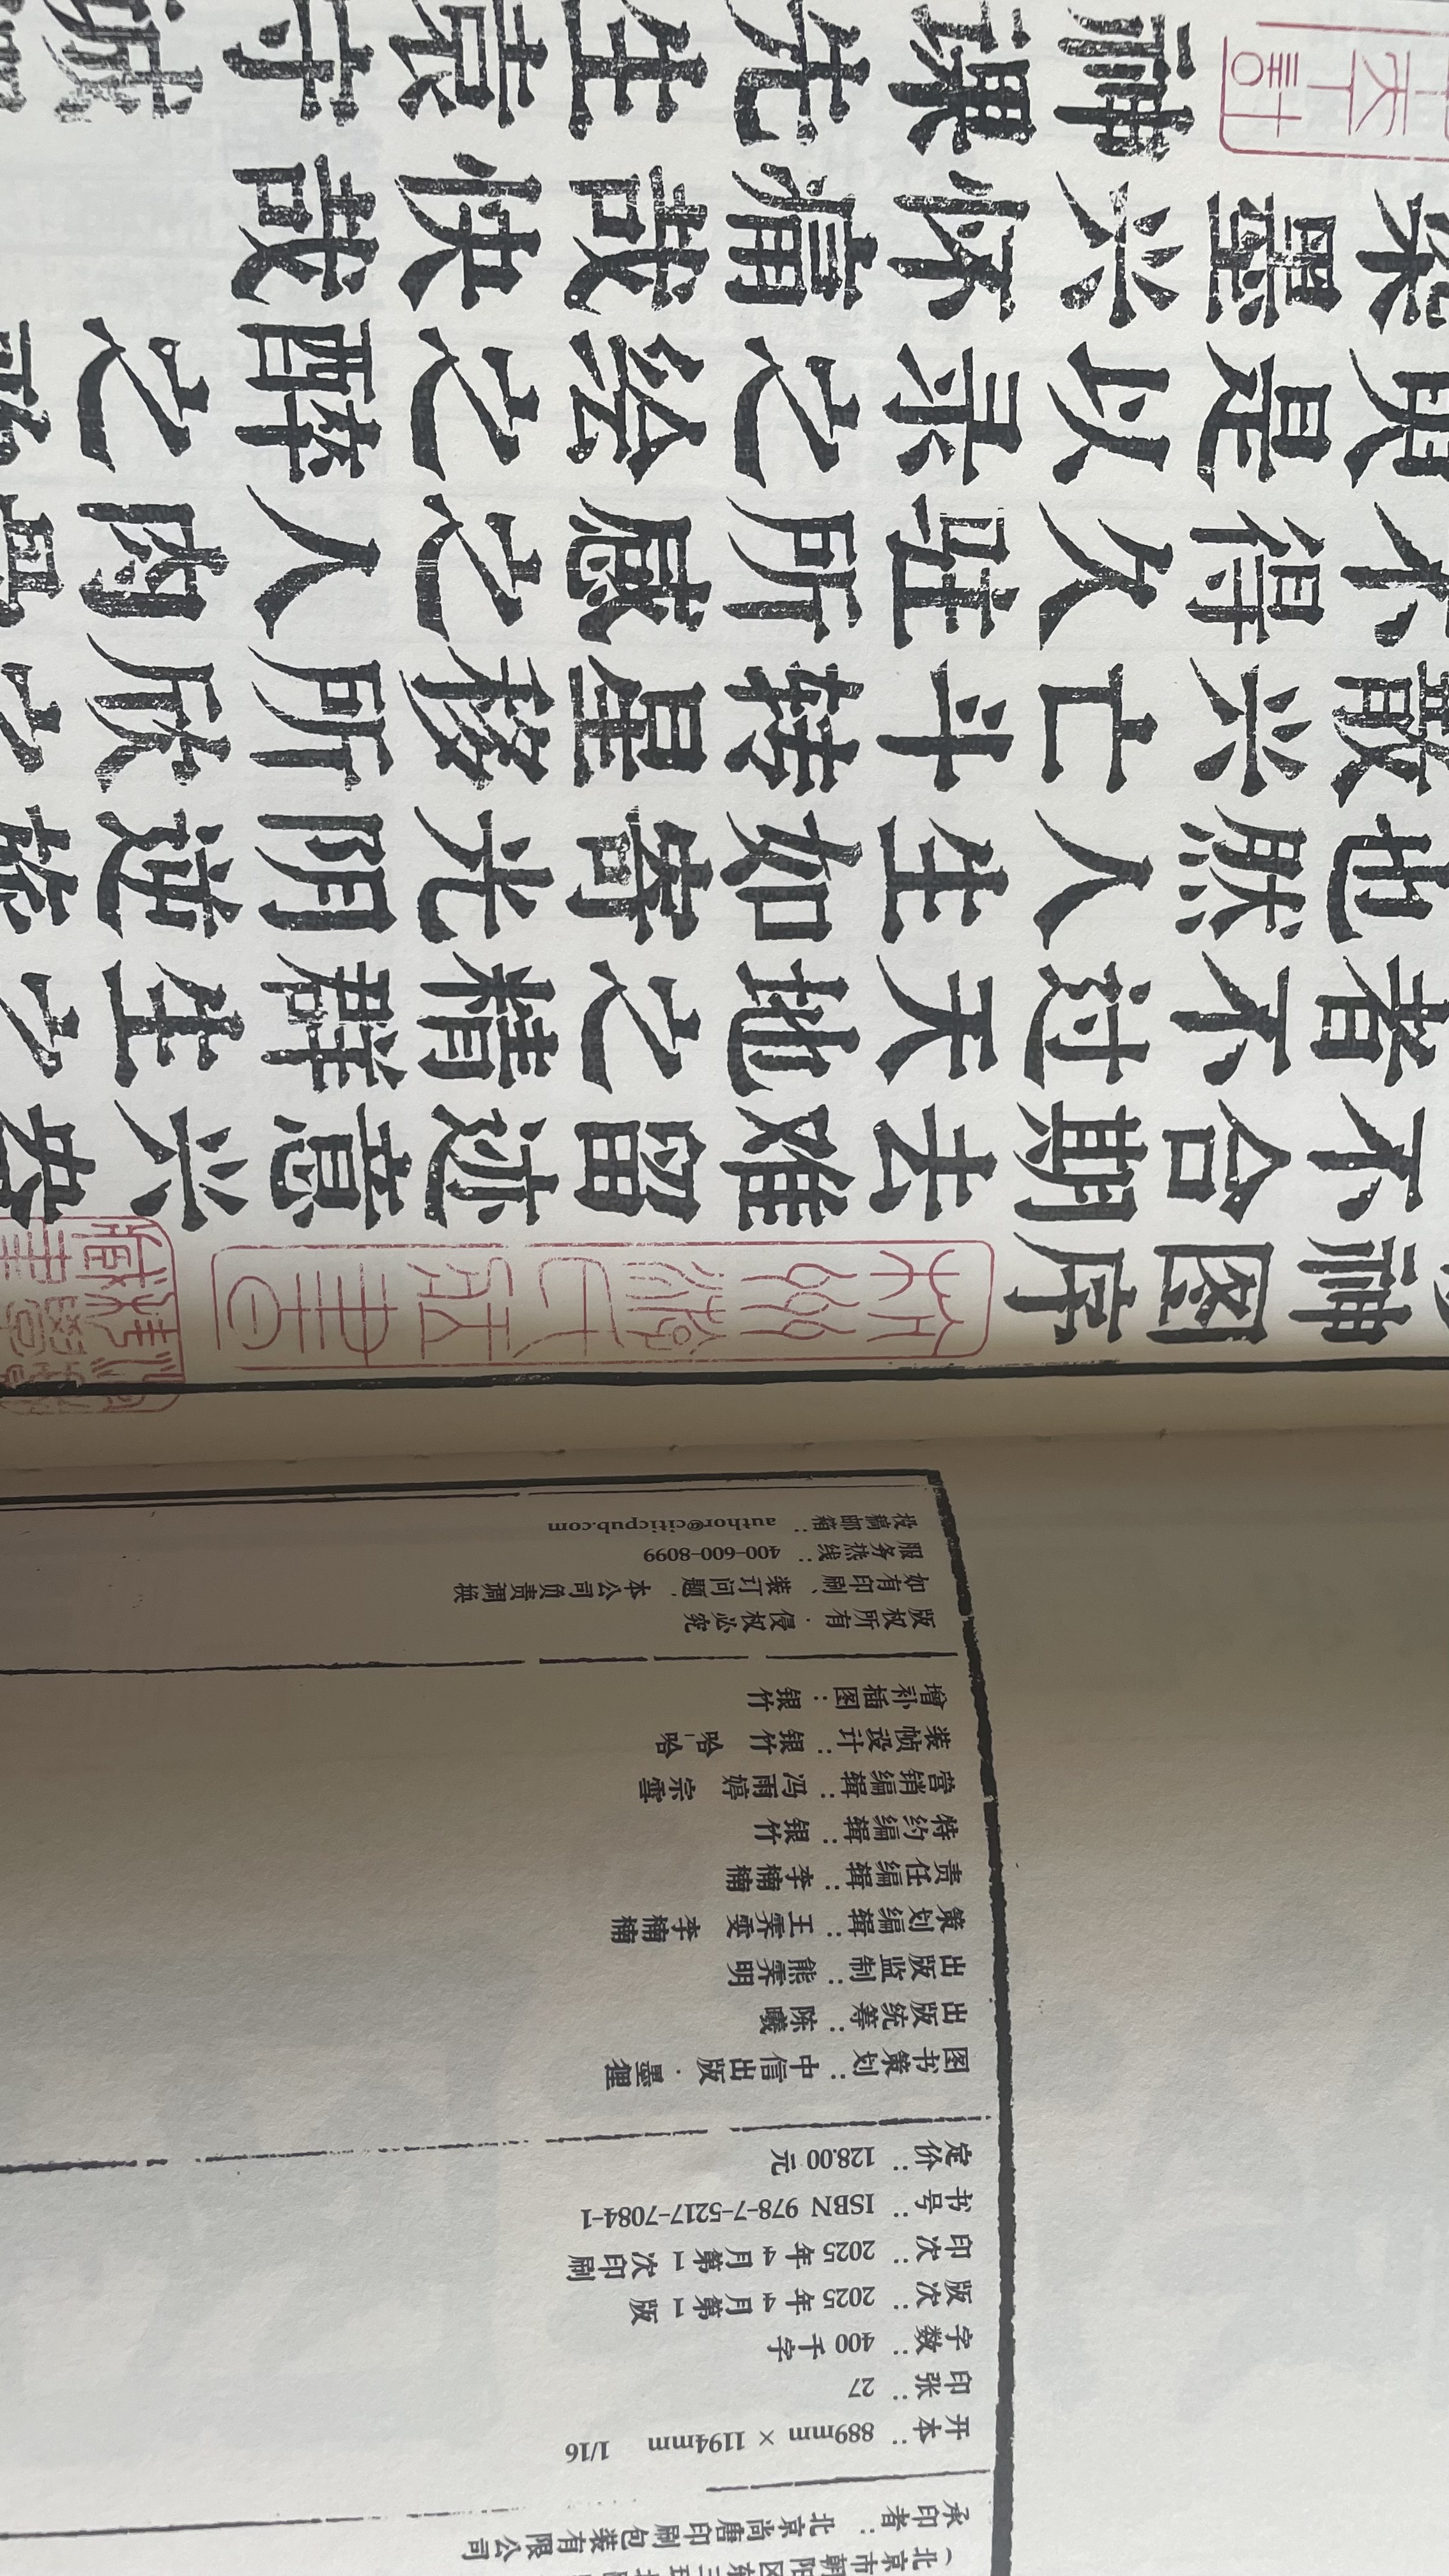 （北京市朝阳区东三环北
承印者：北京尚唐印刷包装有限公司
开本：889mm × 1194mm 1/16
印张：27
字数：400 千字
版次：2025 年 4 月第 1 版
印次：2025 年 4 月第 1 次印刷
书号：ISBN 978-7-5217-7084-1
定价：128.00 元
图书策划：中信出版·墨狸
出版统筹：陈曦
出版监制：熊霁明
策划编辑：王霁雯 李楠楠
责任编辑：李楠楠
特约编辑：银竹
营销编辑：冯雨婷 宗雪
装帧设计：银竹 哈哈
增补插图：银竹
版权所有·侵权必究
如有印刷、装订问题，本公司负责调换
服务热线：400-600-8099
投稿邮箱：author@citicpub.com
神图序
不合期去难留迹意兴
者不过天地之精群生之
也然人生如寄光阴逆旅
散兴亡斗转星移所欣之
不得久驻所感之人肉
则是以录之绘之醉之
墨兴怀痛哉快哉
神课先生哀守诚